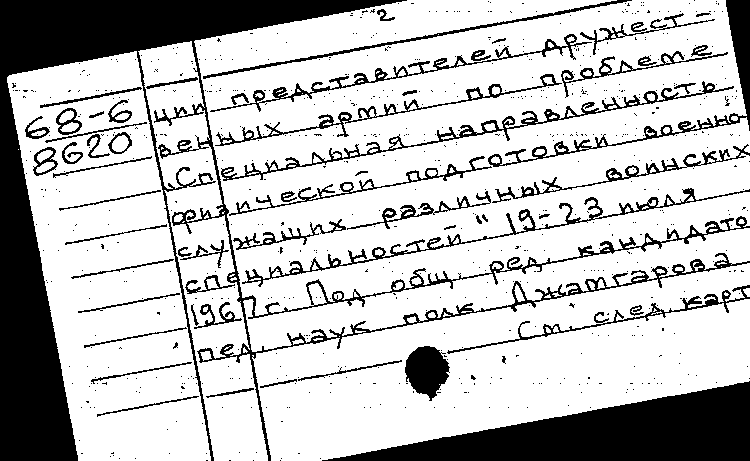 2
68-6
8620
ции представителей дружест-
венных армий по проблеме
„Специальная направленность
физической подготовки военно-
служащих различных воинских
специальностей" 19-23 июля
1967г. Под общ. ред. кандидато
пед. наук полк. Джамгарова
См. след. карт